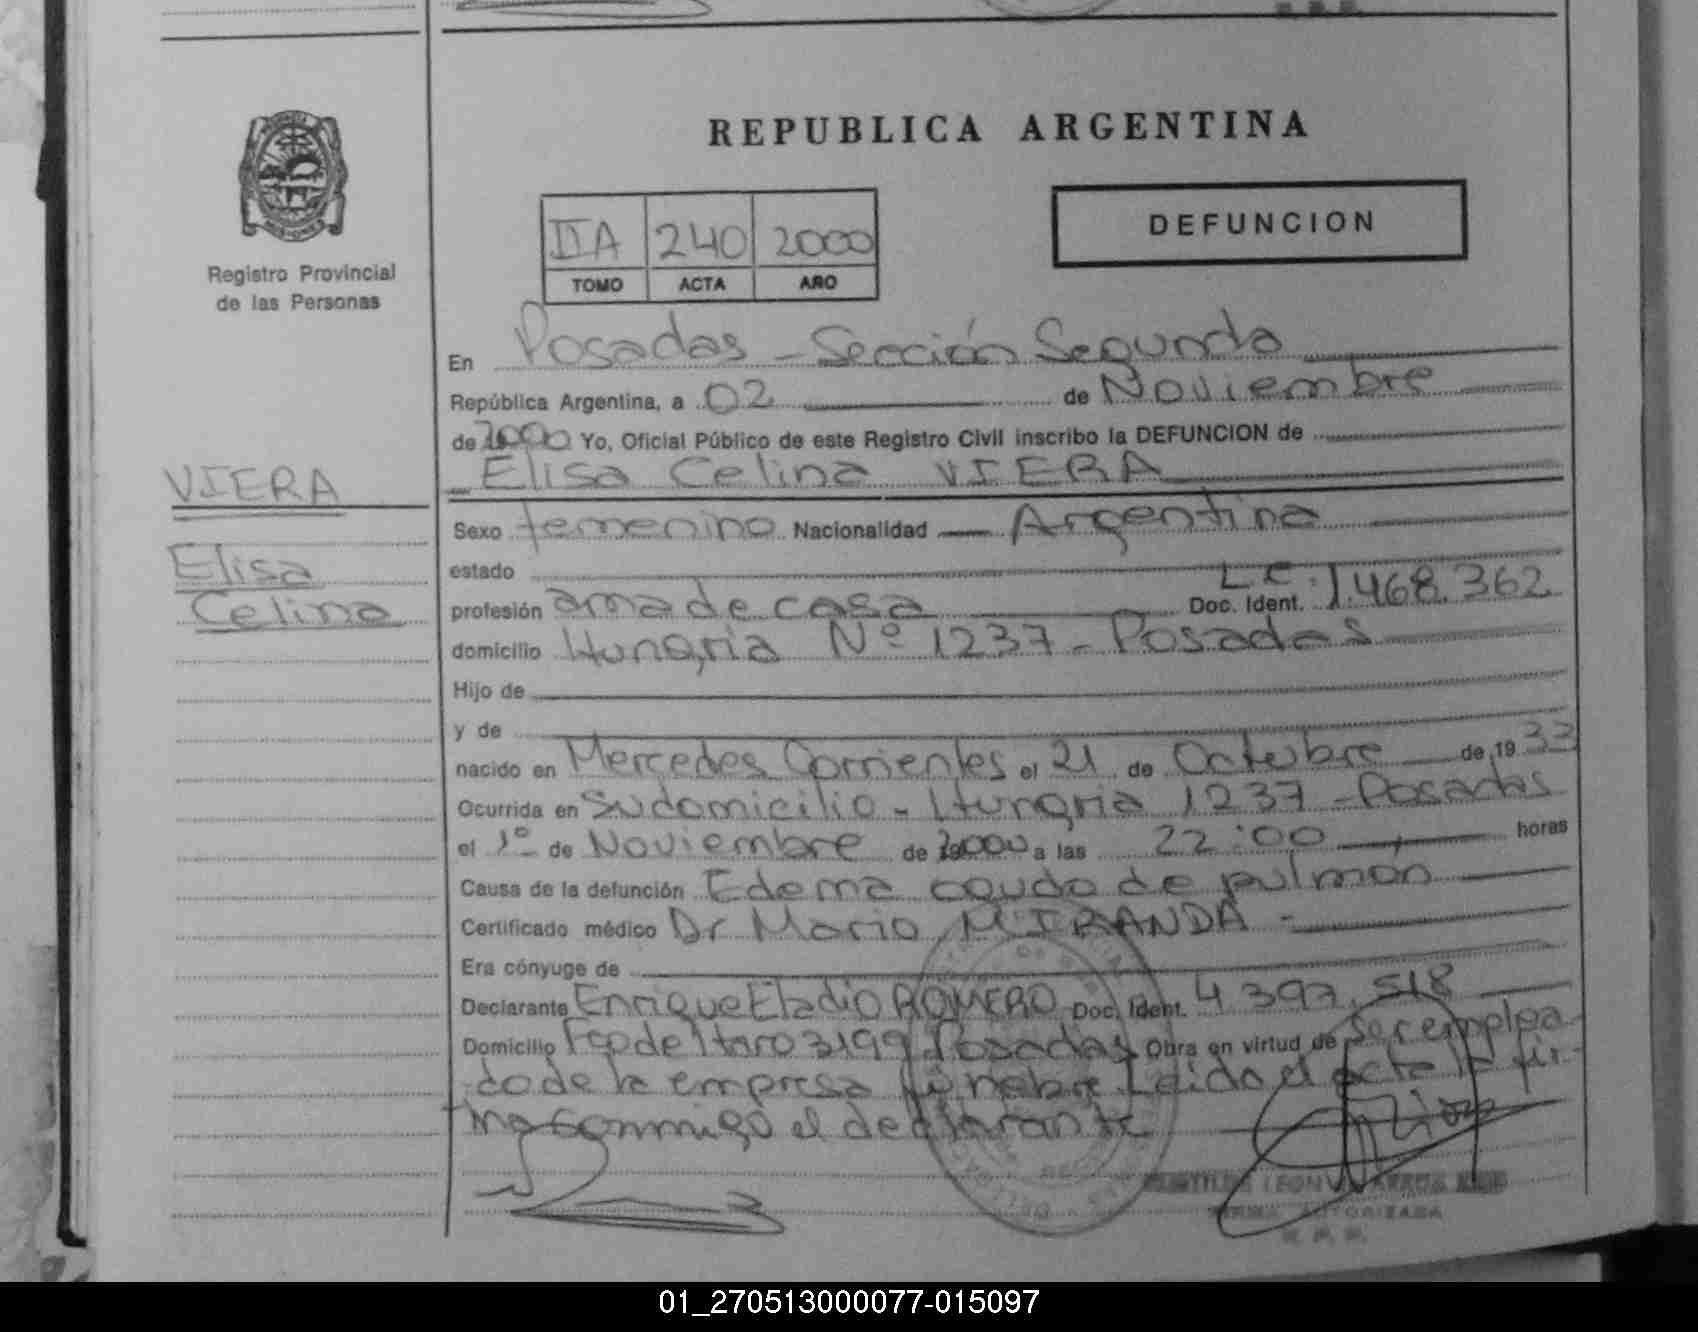 REPUBLICA ARGENTINA
Registro Provincial
de las Personas
IIA 240 2000
TOMO ACTA AÑO
DEFUNCION
En Posadas - Sección Segunda
República Argentina, a 02 de Noviembre
de 2000 Yo, Oficial Público de este Registro Civil inscribo la DEFUNCION de
Elisa Celina VIERA
VIERA
Elisa
Celina
Sexo femenino Nacionalidad Argentina
estado
profesión ama de casa Doc. Ident. L.C. 1.468.362
domicilio Hungria Nº 1237 - Posadas
Hijo de
y de
nacido en Mercedes Corrientes el 21 de Octubre de 1933
Ocurrida en Su domicilio - Hungria 1237 - Posadas
el 1º de Noviembre de 2000 a las 22:00 horas
Causa de la defunción Edema agudo de pulmón
Certificado médico Dr Mario MIRANDA -
Era cónyuge de
Declarante Enrique Eladio ROMERO Doc. Ident. 4.397.518
Domicilio Fco de Haro 3199 Posadas Obra en virtud de Ser emplea-
do de la empresa fúnebre Leido el acta la fir-
ma conmigo el declarante
FIRMA AUTORIZADA
01_270513000077-015097